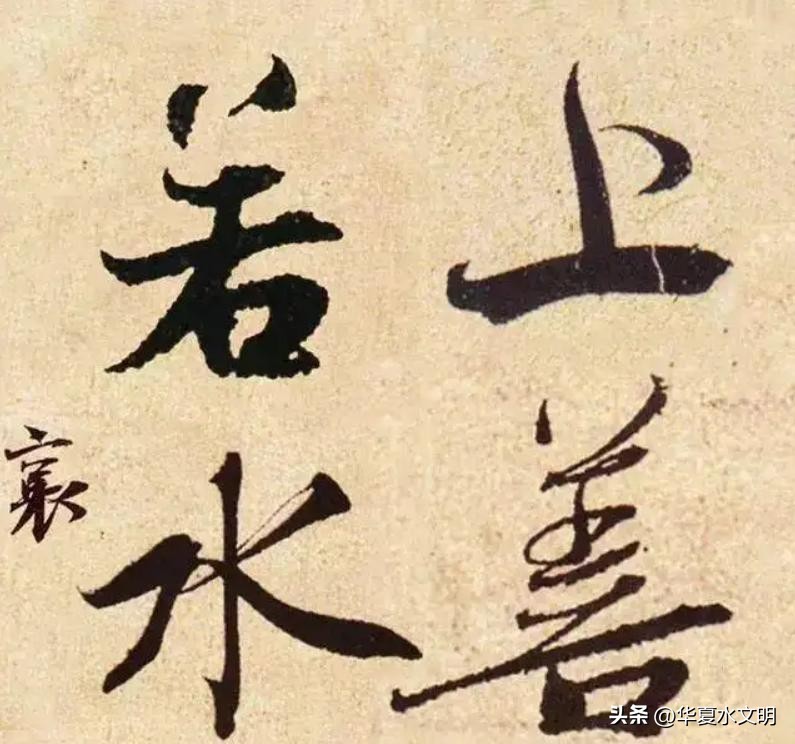 上善
若水
襄
头条 @华夏水文明